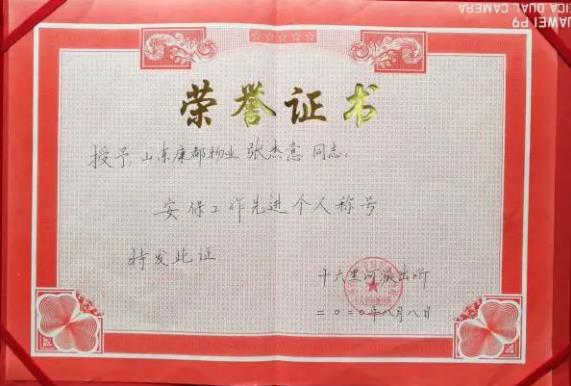 HUAWEI P9
LEICA DUAL CAMERA
荣誉证书
授予:山东康都物业 张杰意 同志:
安保工作先进个人称号
特发此证
十六里河派出所
二〇二〇年八月八日